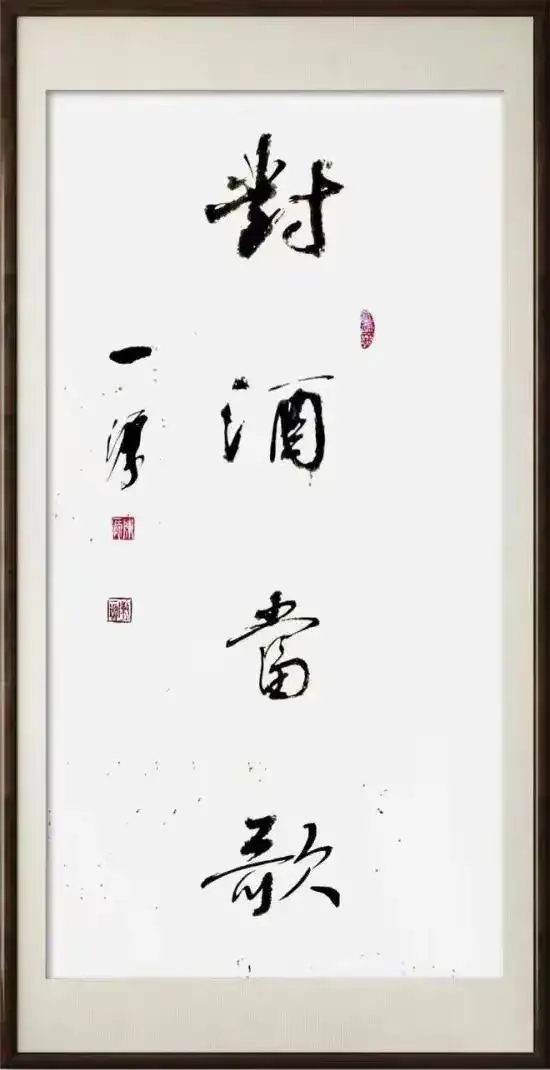 對酒當歌
一源